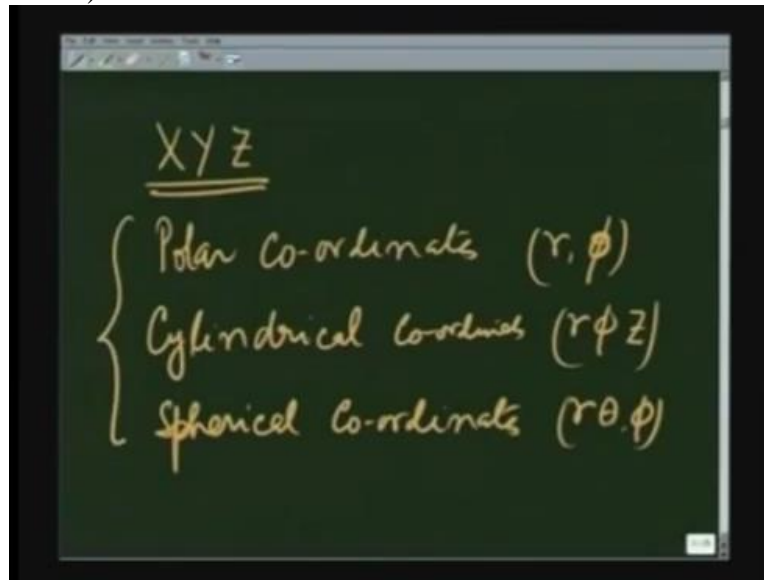 XYZ
Polar Co-ordinates (r, φ)
Cylindrical Co-ordinates (r φ Z)
Spherical Co-ordinates (r θ, φ)